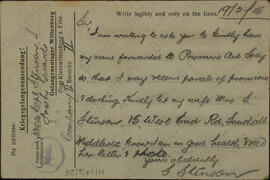 Write legibly and only on the lines! 19/2/15
Sir
I am writing to ask you to kindly have
my name forwarded to Prisoners Aid Society
so that I may receive parcels of provisions
& clothing. Kindly let my wife Mrs. S
Stinson, 15 West End Rd, Southall
Middlesex know I am in good health,
her letter &
Yours obediently
S Stinson
Kriegsgefangenensendung!
My address:
Stinson S
Gefangenenlager Wittenberg
Post Kleinwittenberg a. Elbe.
Company
Baracke